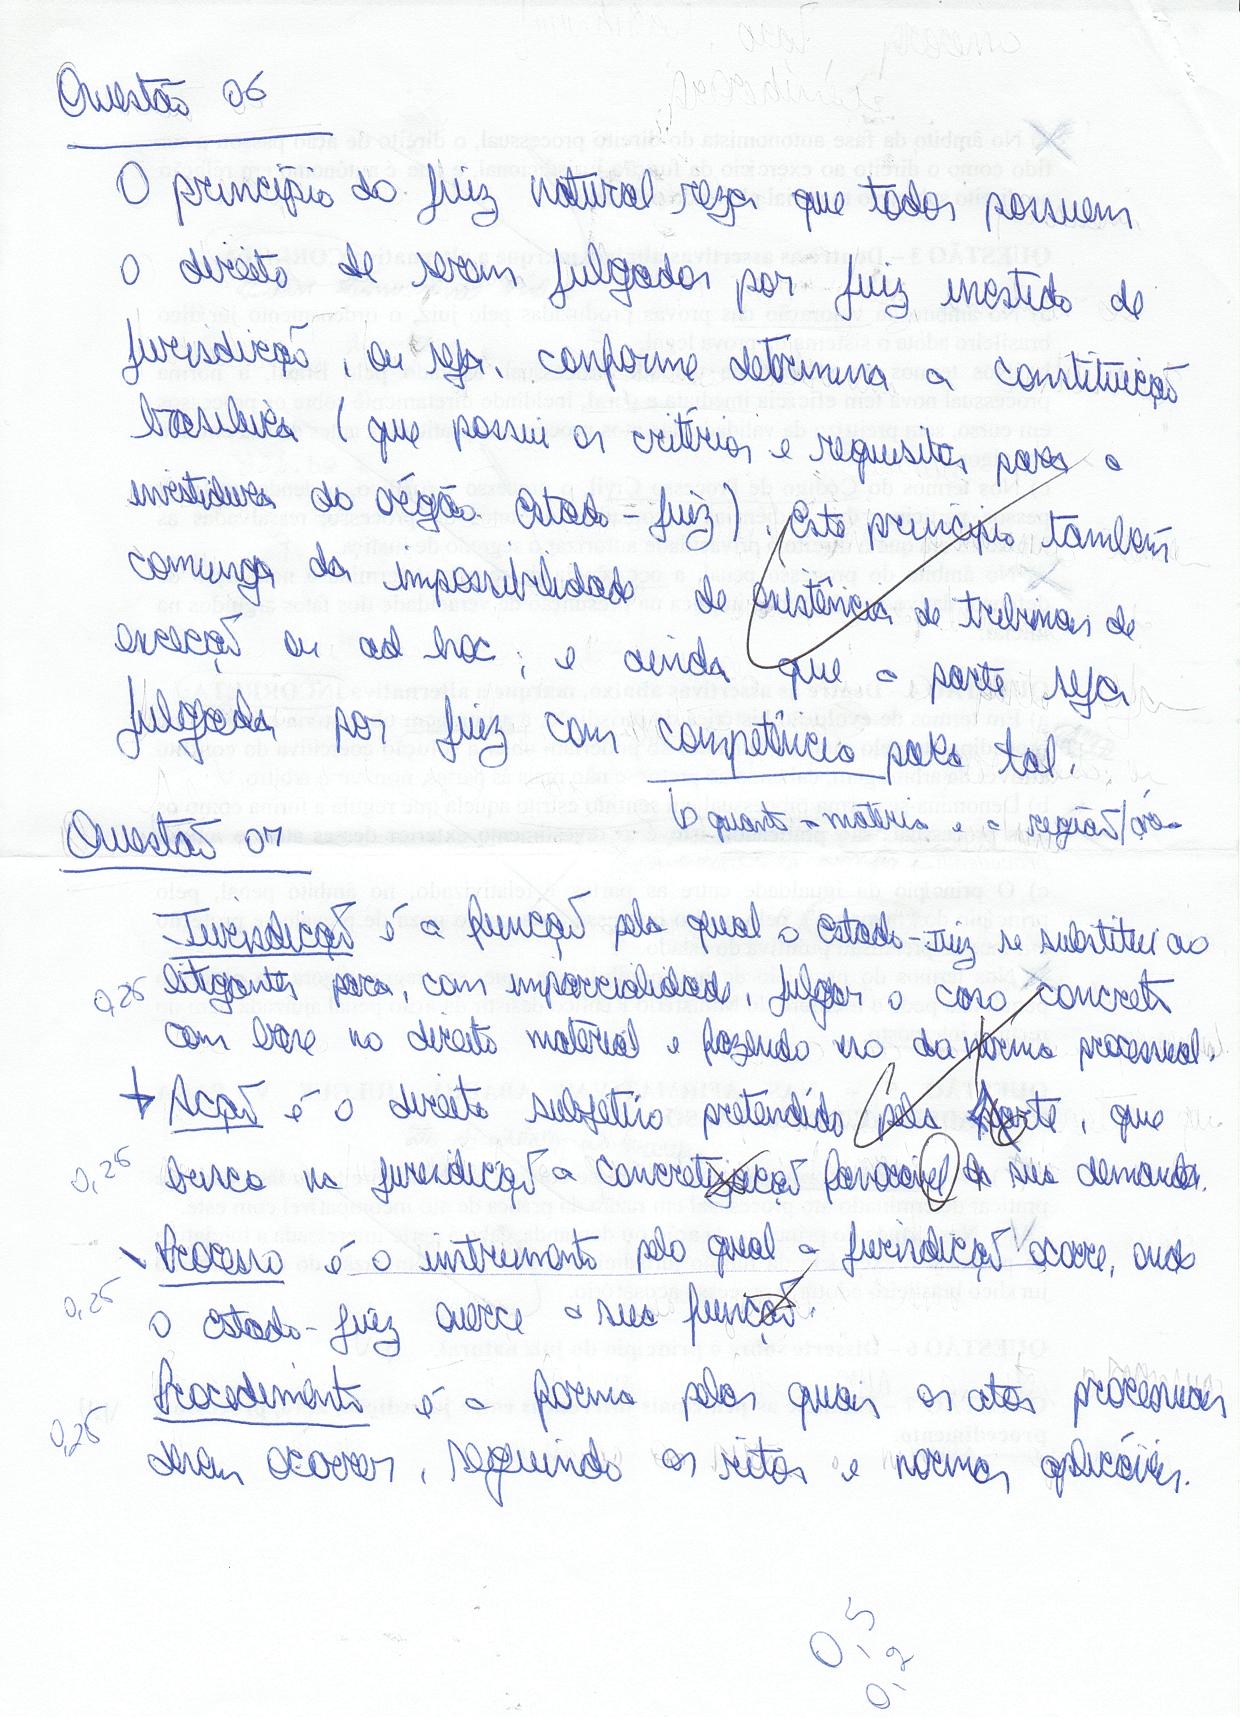 Questão 06
O princípio do juiz natural reza que todos possuem
o direito de serem julgados por juiz investido de
jurisdição, ou seja, conforme determina a constituição
brasileira (que possui os critérios e requisitos para a
investidura do órgão estado-juiz). Este princípio também
comunga da impossibilidade de existência de tribunais de
exceção ou ad hoc; e ainda que a parte seja
julgada por juiz com competência para tal.
quanto a matéria e a região/
Questão 07
Jurisdição é a função pela qual o estado-juiz se substitui ao
0,25 litigantes para, com imparcialidade, julgar o caso concreto
com base no direito material e fazendo uso da norma processual.
Ação é o direito subjetivo pretendido pela parte, que
0,25 busca na jurisdição a concretização favorável a sua demanda.
Processo é o instrumento pelo qual a jurisdição ocorre, onde
0,25 o estado-juiz exerce a sua função.
Procedimento é a forma pelas quais os atos processuais
0,25 devem ocorrer, seguindo os ritos e normas aplicáveis.
0,5
0,2